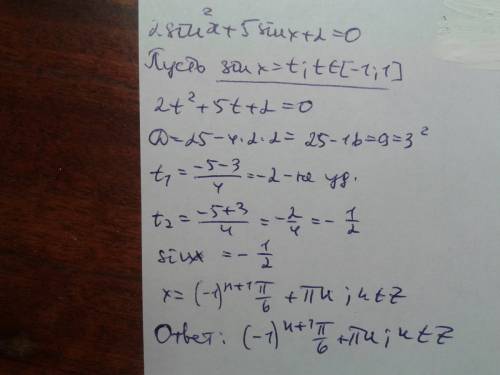 2sin²x+5sinx+2=0
Пусть sinx=t; t∈[-1;1]
2t²+5t+2=0
D=25-4·2·2=25-16=9=3²
t₁=(-5-3)/4=-2-не уд.
t₂=(-5+3)/4=-2/4=-1/2
sinx=-1/2
x=(-1)ⁿ⁺¹π/6+πn; n∈Z
Ответ: (-1)ⁿ⁺¹π/6+πn; n∈Z